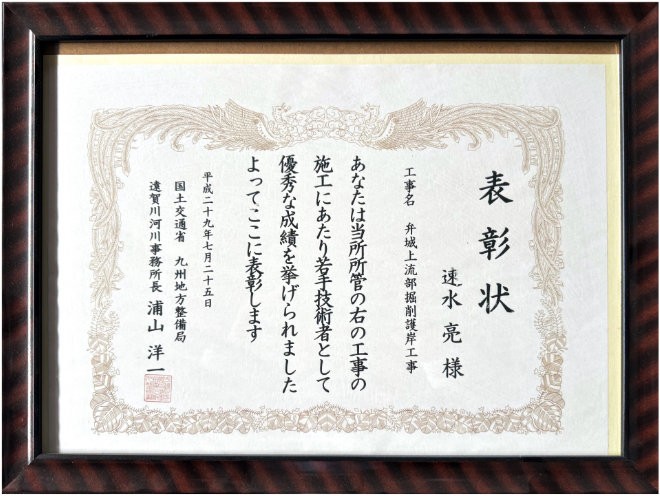 表彰状
速水亮様
工事名 弁城上流部掘削護岸工事
あなたは当所所管の右の工事の
施工にあたり若手技術者として
優秀な成績を挙げられました
よってここに表彰します
平成二十九年七月二十五日
国土交通省 九州地方整備局
遠賀川河川事務所長 浦山洋一